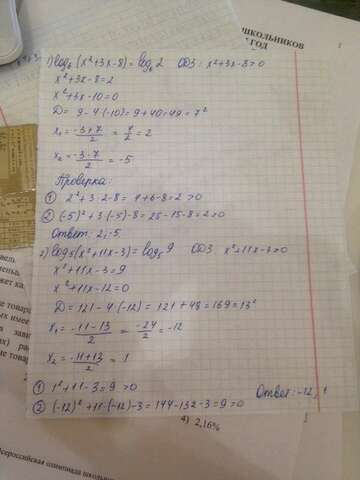 ШКОЛЬНИКОВ
ГОД
1) log₆(x²+3x-8) = log₆2 ОДЗ: x²+3x-8>0
x²+3x-8=2
x²+3x-10=0
D= 9-4·(-10)=9+40=49=7²
x₁= (-3+7)/2 = 7/2 = 2
x₂= (-3-7)/2 = -5
Проверка:
① 2²+3·2-8= 4+6-8=2>0
② (-5)²+3·(-5)-8=25-15-8=2>0
Ответ: 2;-5
2) log₅(x²+11x-3)=log₅9 ОДЗ x²+11x-3>0
x²+11x-3=9
x²+11x-12=0
D=121-4·(-12)=121+48=169=13²
x₁= (-11-13)/2 = -24/2 = -12
x₂= (-11+13)/2 = 1
① 1²+11-3=9>0 Ответ:-12, 1
② (-12)²+11·(-12)-3=144-132-3=9>0
4) 2,16%
Всероссийская олимпиада школьн